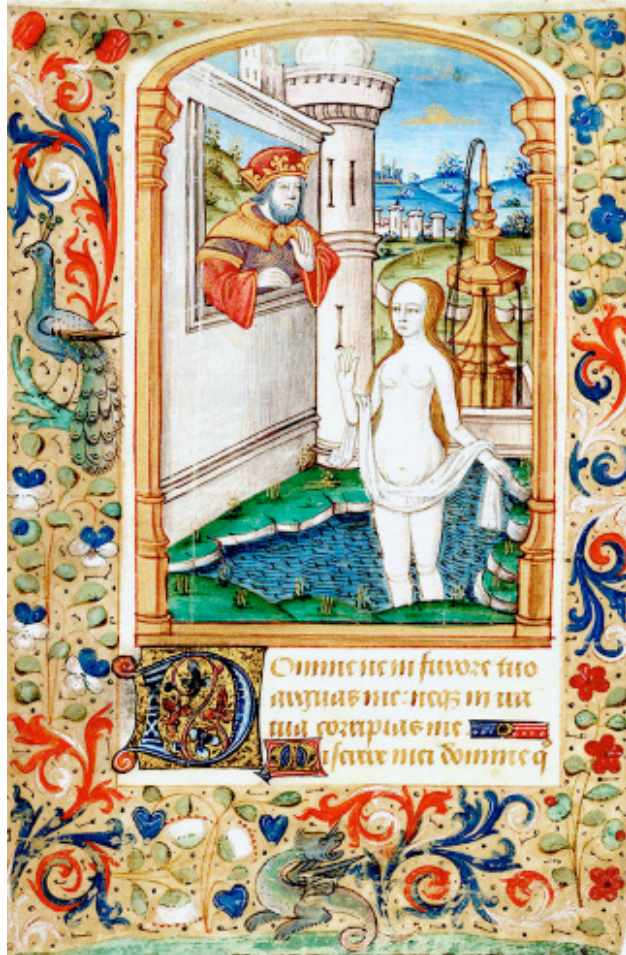 Domine ne in furore tuo
arguas me: neq3 in ira
tua corripias me
Miserere mei domine q̄